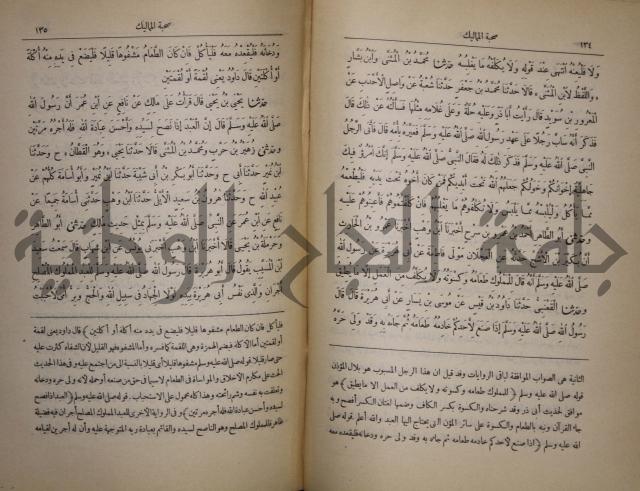 ١٣٤
صحبة المماليك
وَلَا فَلْيُعِنْهُ انْتَهَى عِنْدَ قَوْلِهِ وَلَا يُكَلِّفْهُ مَا يَغْلِبُهُ حَدَّثَنَا مُحَمَّدُ بْنُ الْمُثَنَّى وَابْنُ بَشَّارٍ
وَاللَّفْظُ لِابْنِ الْمُثَنَّى قَالَا حَدَّثَنَا مُحَمَّدُ بْنُ جَعْفَرٍ حَدَّثَنَا شُعْبَةُ عَنْ وَاصِلٍ الْأَحْدَبِ عَنِ
الْمَعْرُورِ بْنِ سُوَيْدٍ قَالَ رَأَيْتُ أَبَا ذَرٍّ وَعَلَيْهِ حُلَّةٌ وَعَلَى غُلَامِهِ مِثْلُهَا فَسَأَلْتُهُ عَنْ ذَلِكَ قَالَ
فَذَكَرَ أَنَّهُ سَابَّ رَجُلًا عَلَى عَهْدِ رَسُولِ اللهِ صَلَّى اللهُ عَلَيْهِ وَسَلَّمَ فَعَيَّرَهُ بِأُمِّهِ قَالَ فَأَتَى الرَّجُلُ
النَّبِيَّ صَلَّى اللهُ عَلَيْهِ وَسَلَّمَ فَذَكَرَ ذَلِكَ لَهُ فَقَالَ النَّبِيُّ صَلَّى اللهُ عَلَيْهِ وَسَلَّمَ إِنَّكَ امْرُؤٌ فِيكَ
جَاهِلِيَّةٌ إِخْوَانُكُمْ وَخَوَلُكُمْ جَعَلَهُمُ اللهُ تَحْتَ أَيْدِيكُمْ فَمَنْ كَانَ أَخُوهُ تَحْتَ يَدَيْهِ فَلْيُطْعِمْهُ
مِمَّا يَأْكُلُ وَلْيُلْبِسْهُ مِمَّا يَلْبَسُ وَلَا تُكَلِّفُوهُمْ مَا يَغْلِبُهُمْ فَإِنْ كَلَّفْتُمُوهُمْ فَأَعِينُوهُمْ عَلَيْهِ
وَحَدَّثَنِي أَبُو الطَّاهِرِ أَحْمَدُ بْنُ عَمْرِو بْنِ سَرْحٍ أَخْبَرَنَا ابْنُ وَهْبٍ أَخْبَرَنَا عَمْرُو بْنُ الْحَارِثِ
أَنَّ بُكَيْرَ بْنَ الْأَشَجِّ حَدَّثَهُ عَنِ الْعَجْلَانِ مَوْلَى فَاطِمَةَ عَنْ أَبِي هُرَيْرَةَ عَنْ رَسُولِ اللهِ
صَلَّى اللهُ عَلَيْهِ وَسَلَّمَ أَنَّهُ قَالَ لِلْمَمْلُوكِ طَعَامُهُ وَكِسْوَتُهُ وَلَا يُكَلَّفُ مِنَ الْعَمَلِ إِلَّا مَا يُطِيقُ
وَحَدَّثَنَا الْقَعْنَبِيُّ حَدَّثَنَا دَاوُدُ بْنُ قَيْسٍ عَنْ مُوسَى بْنِ يَسَارٍ عَنْ أَبِي هُرَيْرَةَ قَالَ قَالَ
رَسُولُ اللهِ صَلَّى اللهُ عَلَيْهِ وَسَلَّمَ إِذَا صَنَعَ لِأَحَدِكُمْ خَادِمُهُ طَعَامَهُ ثُمَّ جَاءَهُ بِهِ وَقَدْ وَلِيَ حَرَّهُ
الثانية هى الصواب الموافقة لباقى الروايات وقد قيل ان هذا الرجل المسبوب هو بلال المؤذن
قوله صلى الله عليه وسلم ﴿للمملوك طعامه وكسوته ولا يكلف من العمل الا ما يطيق﴾ هو
موافق لحديث أبى ذر وقد شرحناه والكسوة بكسر الكاف وضمها لغتان الكسر أفصح وبه
جاء القرآن ونبه بالطعام والكسوة على سائر المؤن التى يحتاج اليها العبد والله أعلم . قوله صلى
الله عليه وسلم ﴿اذا صنع لأحدكم خادمه طعامه ثم جاءه به وقد ولى حره ودخانه فليقعده معه
صحبة المماليك
١٣٥
وَدُخَانَهُ فَلْيُقْعِدْهُ مَعَهُ فَلْيَأْكُلْ فَإِنْ كَانَ الطَّعَامُ مَشْفُوهًا قَلِيلًا فَلْيَضَعْ فِي يَدِهِ مِنْهُ أُكْلَةً
أَوْ أُكْلَتَيْنِ قَالَ دَاوُدُ يَعْنِي لُقْمَةً أَوْ لُقْمَتَيْنِ
حَدَّثَنَا يَحْيَى بْنُ يَحْيَى قَالَ قَرَأْتُ عَلَى مَالِكٍ عَنْ نَافِعٍ عَنِ ابْنِ عُمَرَ أَنَّ رَسُولَ اللهِ
صَلَّى اللهُ عَلَيْهِ وَسَلَّمَ قَالَ إِنَّ الْعَبْدَ إِذَا نَصَحَ لِسَيِّدِهِ وَأَحْسَنَ عِبَادَةَ اللهِ فَلَهُ أَجْرُهُ مَرَّتَيْنِ
وَحَدَّثَنِي زُهَيْرُ بْنُ حَرْبٍ وَمُحَمَّدُ بْنُ الْمُثَنَّى قَالَا حَدَّثَنَا يَحْيَى وَهُوَ الْقَطَّانُ ح وَحَدَّثَنَا
ابْنُ نُمَيْرٍ حَدَّثَنَا أَبِي ح وَحَدَّثَنَا أَبُو بَكْرِ بْنُ أَبِي شَيْبَةَ حَدَّثَنَا ابْنُ نُمَيْرٍ وَأَبُو أُسَامَةَ كُلُّهُمْ عَنْ
عُبَيْدِ اللهِ ح وَحَدَّثَنَا هَارُونُ بْنُ سَعِيدٍ الْأَيْلِيُّ حَدَّثَنَا ابْنُ وَهْبٍ حَدَّثَنِي أُسَامَةُ جَمِيعًا عَنْ
نَافِعٍ عَنِ ابْنِ عُمَرَ عَنِ النَّبِيِّ صَلَّى اللهُ عَلَيْهِ وَسَلَّمَ بِمِثْلِ حَدِيثِ مَالِكٍ حَدَّثَنِي أَبُو الطَّاهِرِ
وَحَرْمَلَةُ بْنُ يَحْيَى قَالَا أَخْبَرَنَا ابْنُ وَهْبٍ أَخْبَرَنِي يُونُسُ عَنِ ابْنِ شِهَابٍ قَالَ سَمِعْتُ سَعِيدَ
ابْنَ الْمُسَيَّبِ يَقُولُ قَالَ أَبُو هُرَيْرَةَ قَالَ رَسُولُ اللهِ صَلَّى اللهُ عَلَيْهِ وَسَلَّمَ لِلْعَبْدِ الْمَمْلُوكِ الْمُصْلِحِ
أَجْرَانِ وَالَّذِي نَفْسُ أَبِي هُرَيْرَةَ بِيَدِهِ لَوْلَا الْجِهَادُ فِي سَبِيلِ اللهِ وَالْحَجُّ وَبِرُّ أُمِّي لَأَحْبَبْتُ
فليأكل فان كان الطعام مشفوها قليلا فليضع فى يده منه أكلة أو أكلتين﴾ قال داود يعنى لقمة
أو لقمتين أما الأكلة فبضم الهمزة وهى اللقمة كما فسره وأما المشفوه فهو القليل لأن الشفاه كثرت عليه
حتى صار قليلا قوله صلى الله عليه وسلم مشفوها قليلا أى قليلا بالنسبة الى من اجتمع عليه وفى هذا الحديث
الحث على مكارم الأخلاق والمواساة فى الطعام لاسيما فى حق من صنعه أو حمله لأنه ولى حره ودخانه
وتعلقت به نفسه وشم رائحته وهذا كله محمول على الاستحباب . قوله صلى الله عليه وسلم ﴿العبد اذا نصح
لسيده وأحسن عبادة الله فله أجره مرتين﴾ وفى الرواية الأخرى للعبد المملوك المصلح أجران فيه فضيلة
ظاهرة للمملوك المصلح وهو الناصح لسيده والقائم بعبادة ربه المتوجهة عليه وأن له أجرين لقيامه
جامعة النجاح الوطنية